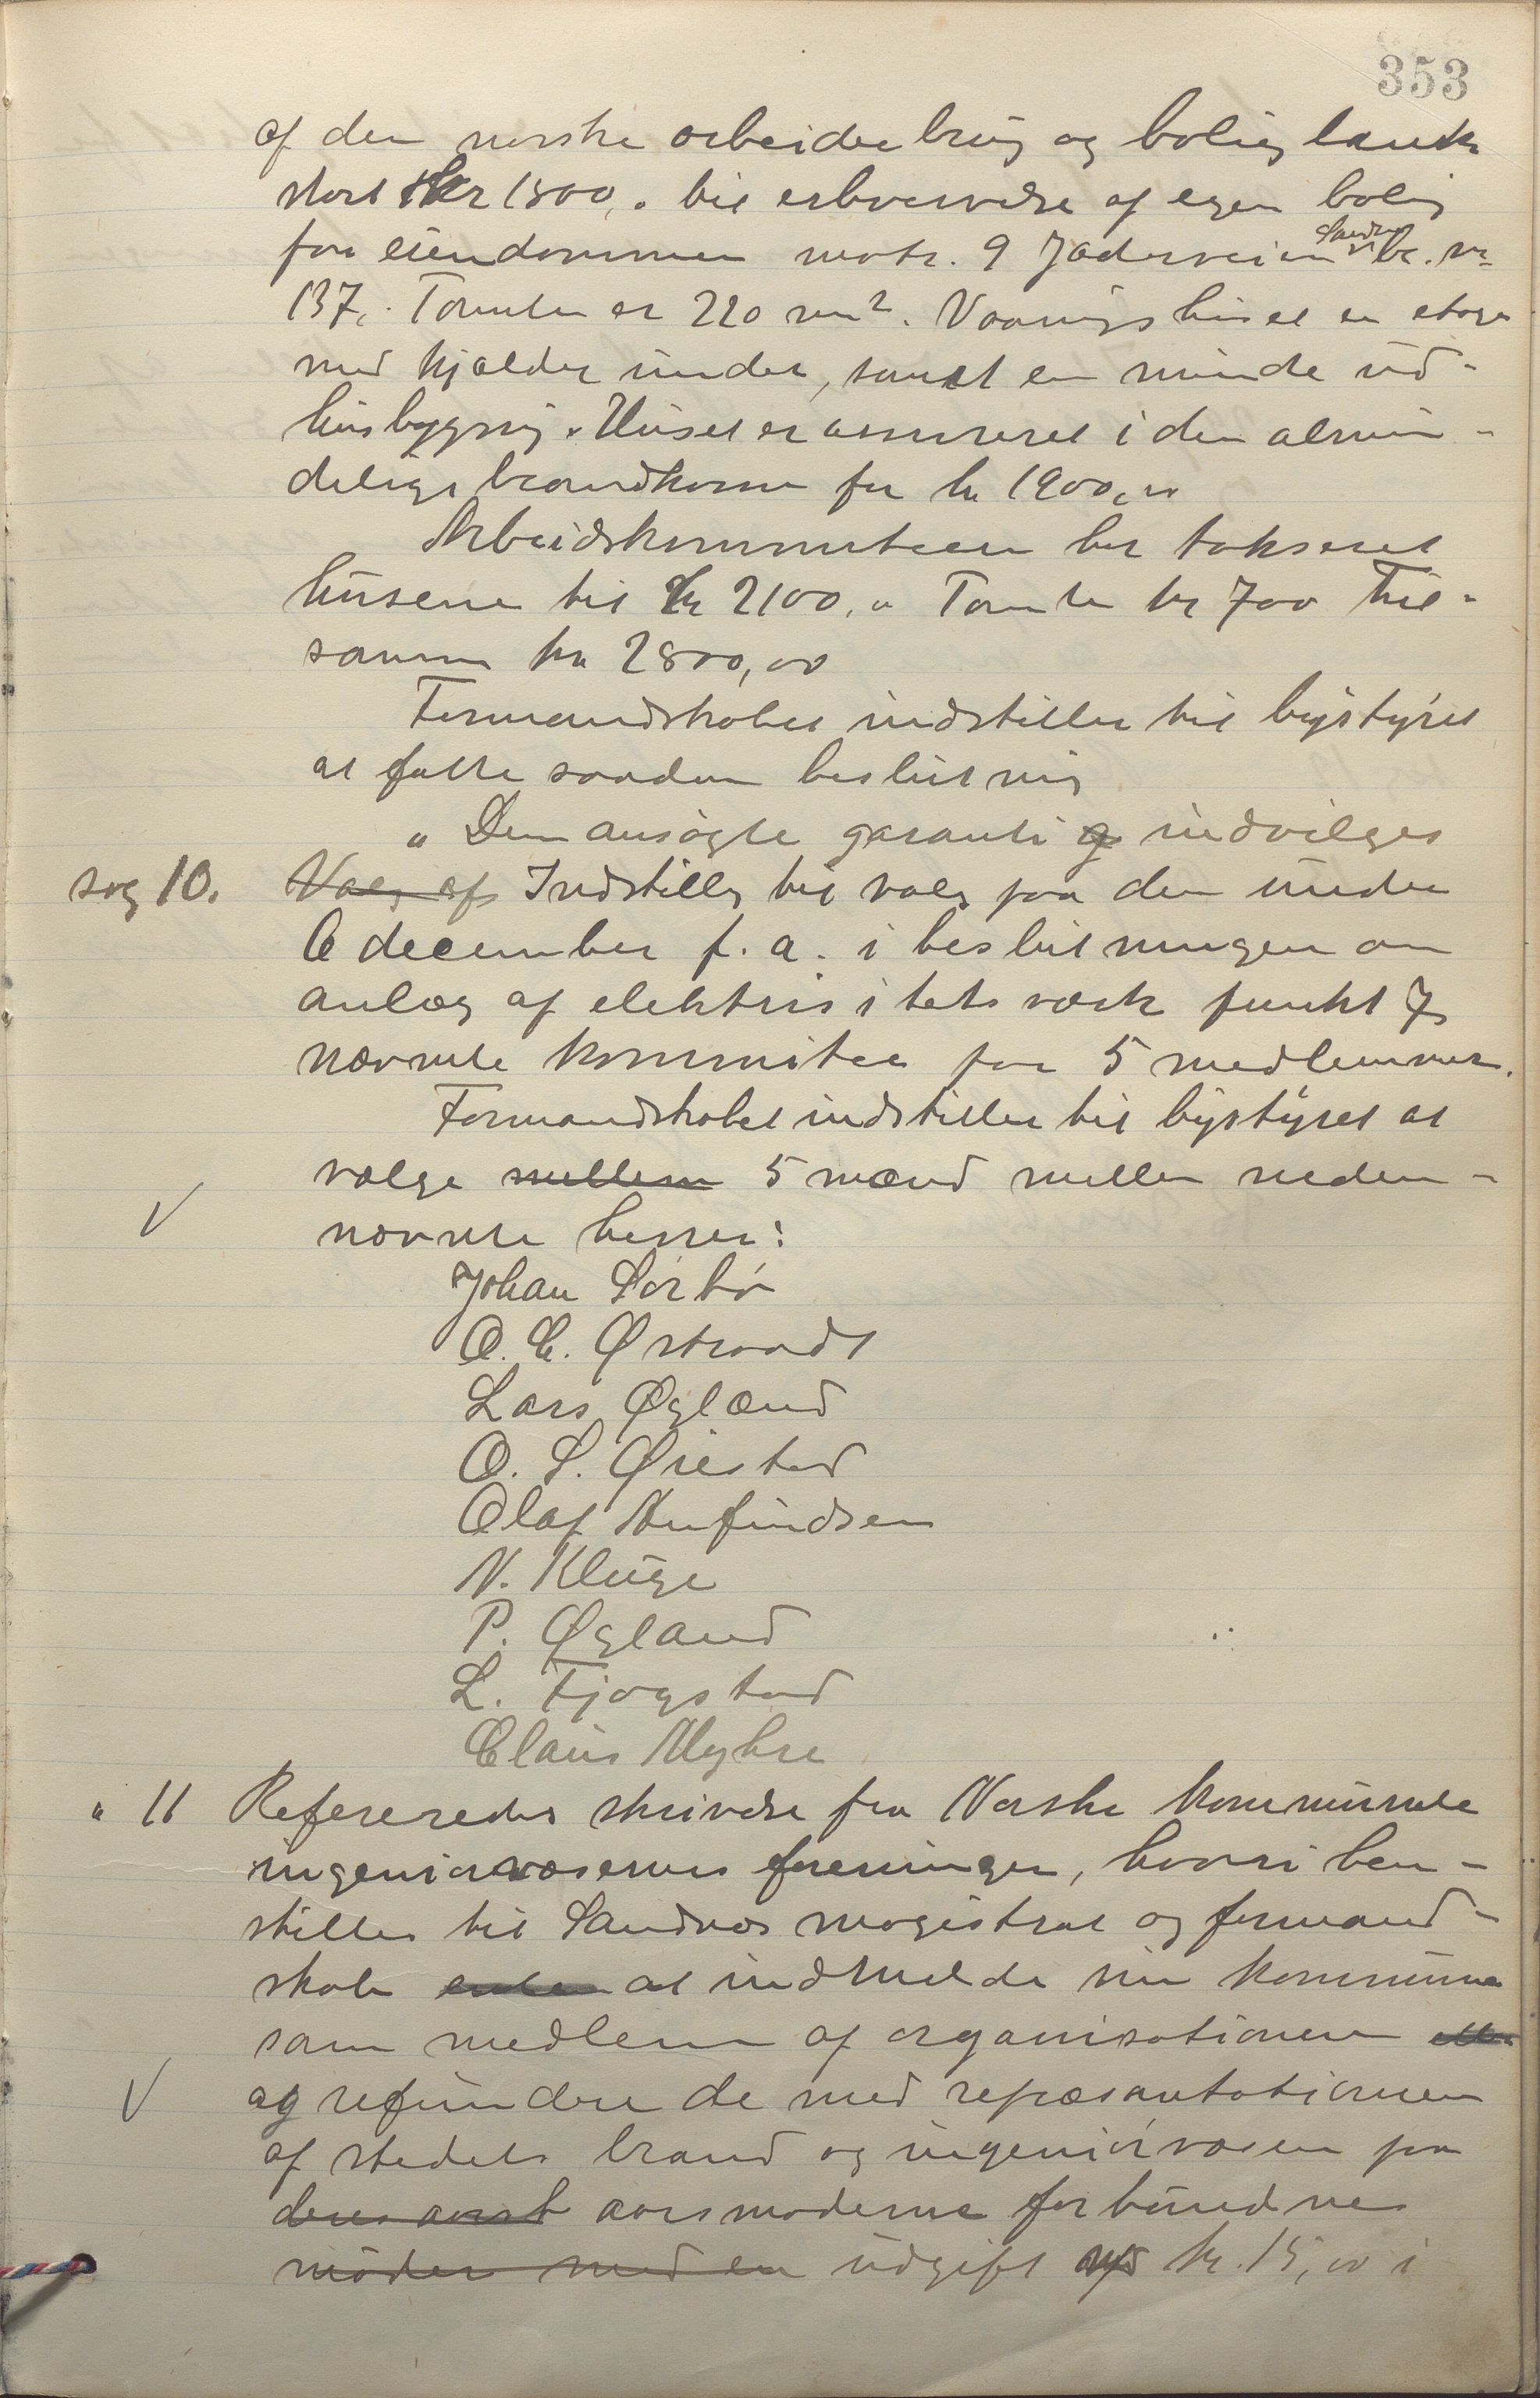 353
af den norske arbeider brug og bolig bank
stort kr 1800,. til erhvervelse af egen bolig
paa eiendommen matr. 9 Jæderveien Sandnes br. nr
137,. Tomten er 220 m². Vaaningshuset en etage
med kjælder under, samt en mindre ud-
husbygning. Huset er assureret i den almin-
delige brandkasse for kr 1900,00
Arbeidskommiteen har takseret
husene til kr 2100,. Tomten kr 700 Til-
sammen kr 2800,00
Formandskabet indstiller til bystyret
at fatte saadan beslutning
" Den ansøgte garanti indvilges
sag 10. Valg af Indstilling til valg paa den under
6 december f. a. i beslutningen om
anlæg af elektrisitetsværk punkt 7
nævnte kommitee paa 5 medlemmer.
Formandskabet indstiller til bystyret at
vælge mellem 5 mænd mellem neden-
V
nævnte herrer:
Johan Sørbø
O. E. Østraadt
Lars Øglænd
O. S. Øiestad
Olaf Anfindsen
N. Kluge
P. Øgland
L. Fjogstad
Claus Myhre
" 11 Refereredes skrivelse fra Norske kommunale
ingeniørvæseners foreninger, hvori hen-
stilles til Sandnes magistrat og formand-
skab at indmelde sin kommune
som medlem af organisationen eller
V og refundere de med repræsentationen
af stedets brand og ingeniørvæsen paa
deres aarsmøderne forbundnes
møder med en udgift kr. 15,00 i